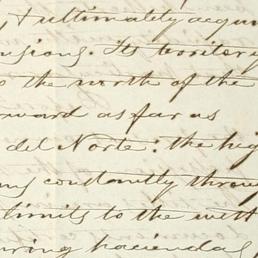 & ultimately acqui
sions. Its territory
o the north of the
ward as far as
del Norte: the hig
constantly throu
limits to the
uring haciendas,